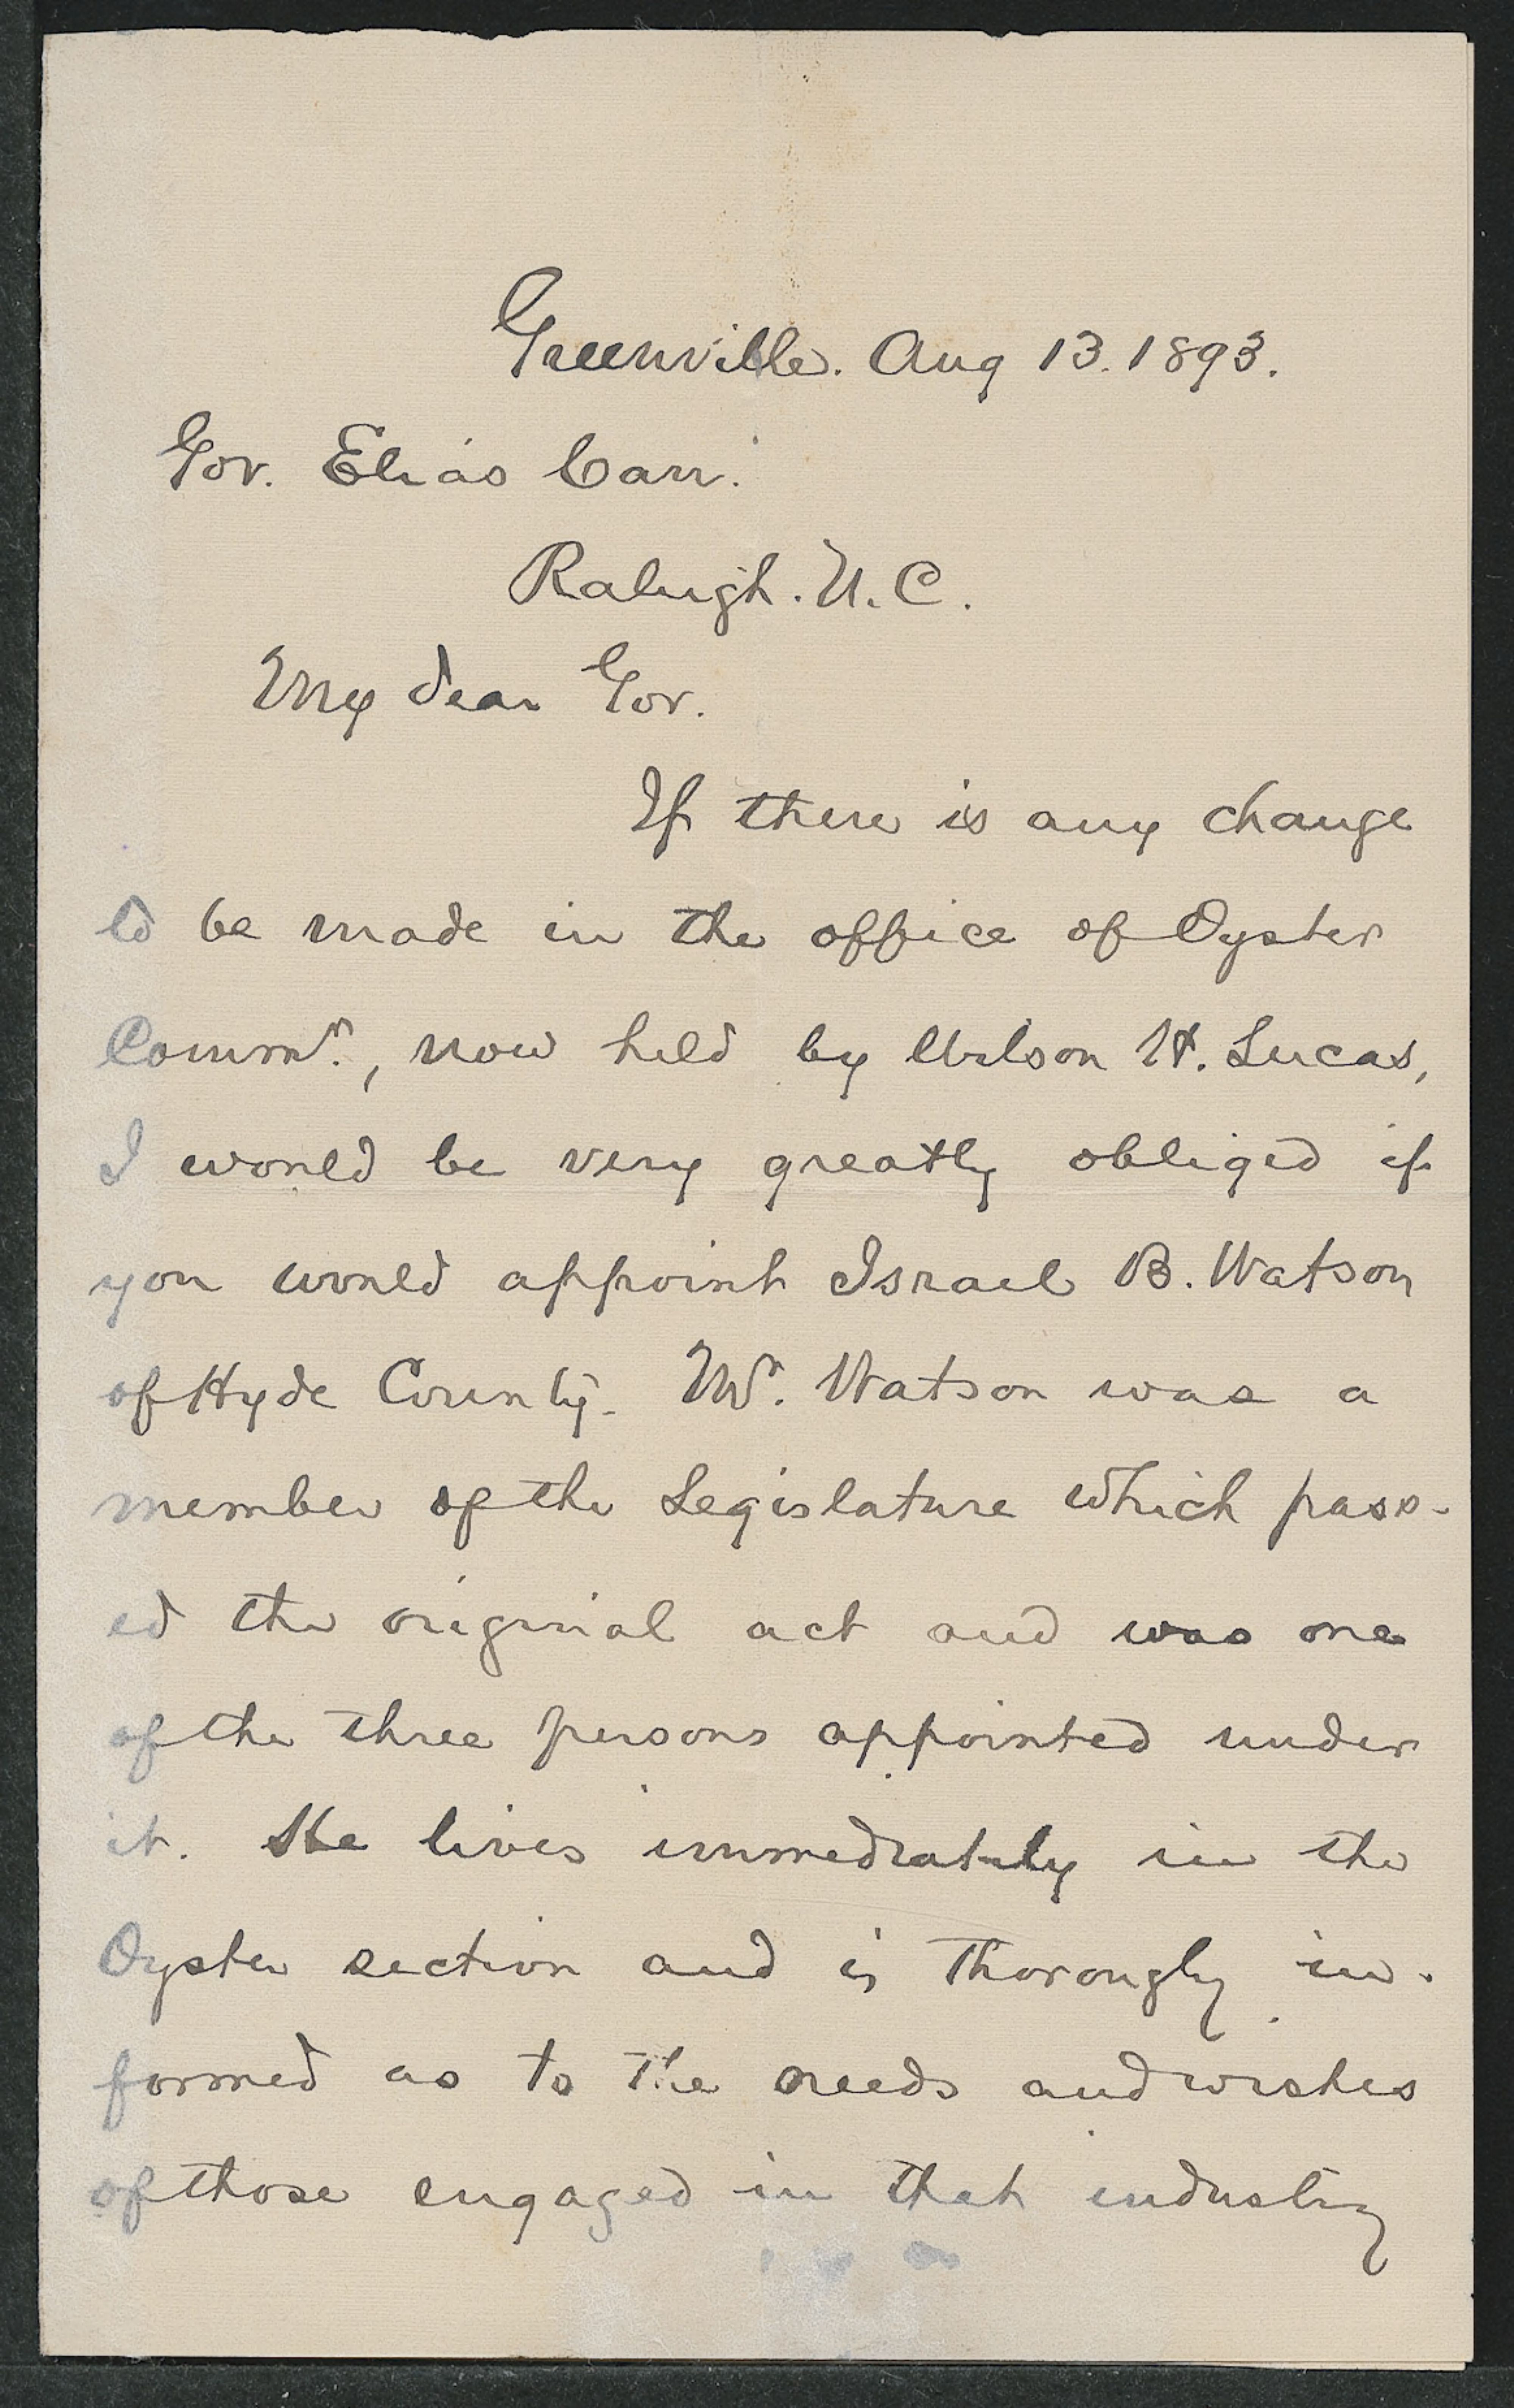 Greenville. Aug 13. 1893.
Gov. Elias Carr.
Raleigh. N. C.
My dear Gov.
If there is any change
to be made in the office of Oyster
Commr., now held by Wilson H. Lucas,
I would be very greatly obliged if
you would appoint Israel B. Watson
of Hyde County. Mr. Watson was a
member of the Legislature which pass-
ed the original act and was one
of the three persons appointed under
it. He lives immediately in the
Oyster section and is thorougly in-
formed as to the needs and wishes
of those engaged in that industry